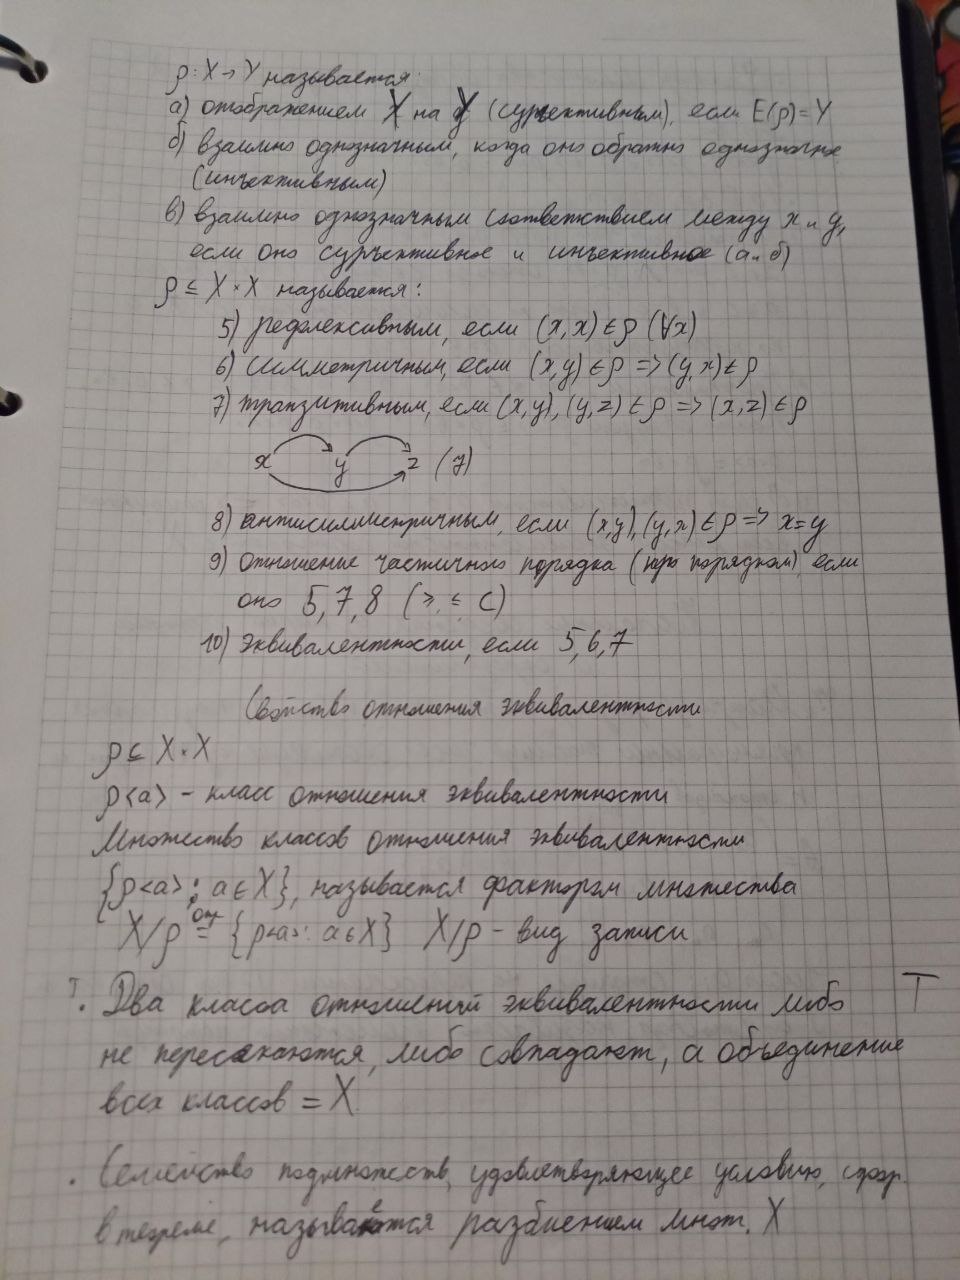 ρ: X → Y называется:
а) отображением X на Y (сурьективным), если E(ρ) = Y
б) взаимно однозначным, когда оно обратно однозначно
(инъективным)
в) взаимно однозначным соответствием между x и y,
если оно сурьективное и инъективное (а и б)
ρ ⊆ X × X называется:
5) рефлексивным, если (x,x) ∈ ρ (∀x)
6) симметричным, если (x,y) ∈ ρ => (y,x) ∈ ρ
7) транзитивным, если (x,y), (y,z) ∈ ρ => (x,z) ∈ ρ
x y z (7)
8) антисимметричным, если (x,y), (y,x) ∈ ρ => x = y
9) отношение частичного порядка ( порядком) если
оно 5, 7, 8 (≥, ≤ ⊂)
10) эквивалентности, если 5, 6, 7
Свойство отношения эквивалентности
ρ ⊆ X × X
ρ<a> - класс отношения эквивалентности
Множество классов отношения эквивалентности
{ρ<a> : a ∈ X}, называется фактором множества
X/ρ = {ρ<a> : a ∈ X} X/ρ - вид записи
T. Два класса отношений эквивалентности либо T
не пересекаются, либо совпадают, а объединение
всех классов = X
. Семейство подмножеств, удовлетворяющее условию, сфор.
в теореме, называется разбиением множ. X